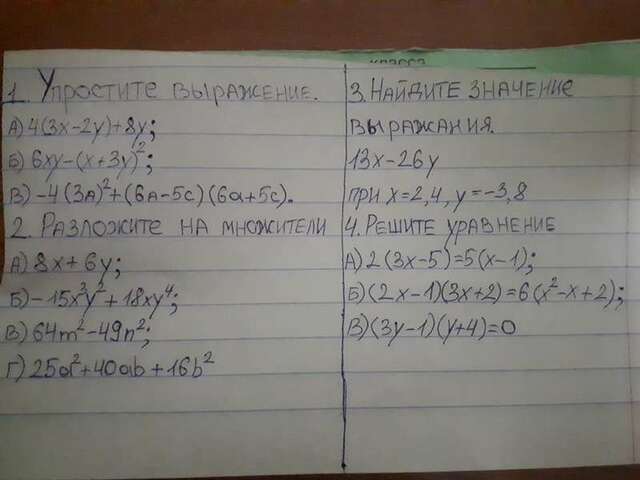 класса
1. Упростите выражение.
А) 4(3x-2y)+8y;
Б) 6xy-(x+3y)²;
В) -4(3a)²+(6a-5c)(6a+5c).
2. Разложите на множители
А) 8x+6y;
Б) -15x³y²+18xy⁴;
В) 64m²-49n²;
Г) 25a²+40ab+16b²
3. Найдите значение
выражания.
13x-26y
при x=2,4, y=-3,8
4. Решите уравнение
А) 2(3x-5)=5(x-1);
Б) (2x-1)(3x+2)=6(x²-x+2);
В) (3y-1)(y+4)=0